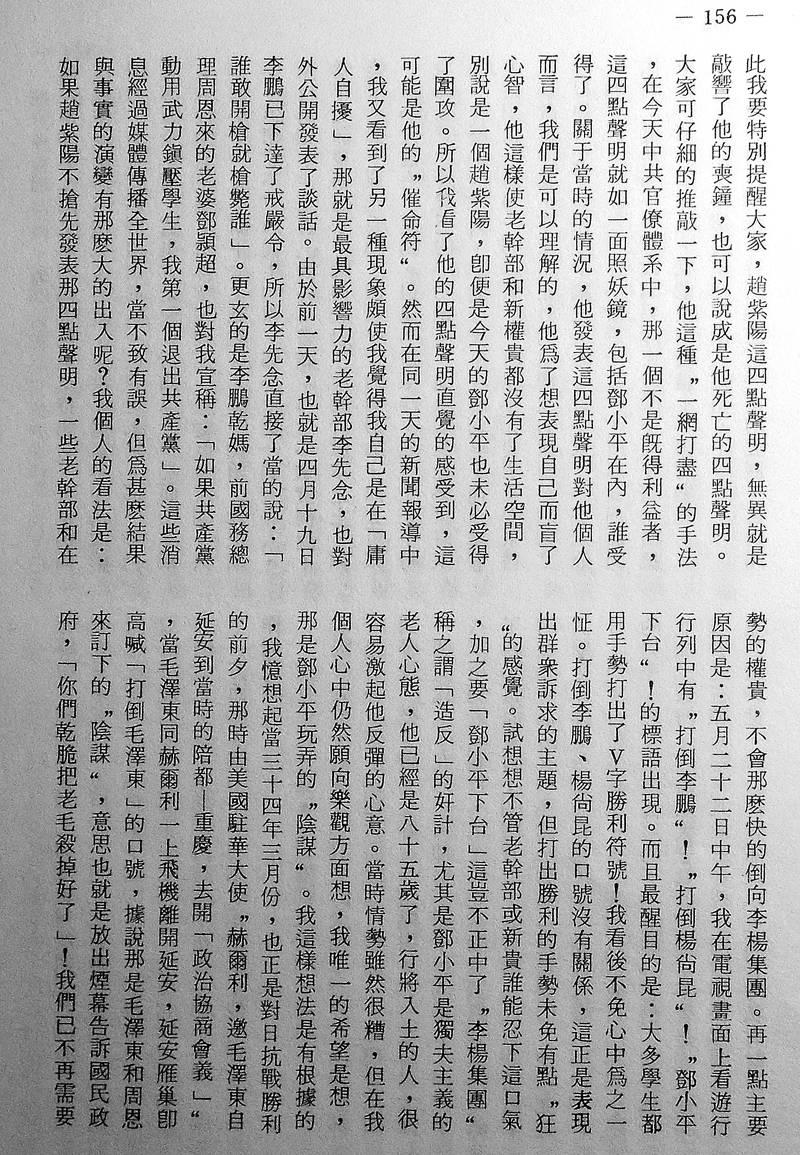 — 156 —
此我要特別提醒大家，趙紫陽這四點聲明，無異就是
敲響了他的喪鐘，也可以說成是他死亡的四點聲明。
大家可仔細的推敲一下，他這種〞一網打盡〝的手法
，在今天中共官僚體系中，那一個不是旣得利益者，
這四點聲明就如一面照妖鏡，包括鄧小平在內，誰受
得了。關于當時的情況，他發表這四點聲明對他個人
而言，我們是可以理解的，他爲了想表現自己而盲了
心智，他這樣使老幹部和新權貴都沒有了生活空間，
別說是一個趙紫陽，卽便是今天的鄧小平也未必受得
了圍攻。所以我看了他的四點聲明直覺的感受到，這
可能是他的〞催命符〝。然而在同一天的新聞報導中
，我又看到了另一種現象頗使我覺得我自己是在「庸
人自擾」，那就是最具影響力的老幹部李先念，也對
外公開發表了談話。由於前一天，也就是四月十九日
李鵬已下達了戒嚴令，所以李先念直接了當的說：「
誰敢開槍就槍斃誰」。更玄的是李鵬乾媽，前國務總
理周恩來的老婆鄧頴超，也對我宣稱：「如果共產黨
動用武力鎭壓學生，我第一個退出共產黨」。這些消
息經過媒體傳播全世界，當不致有誤，但爲甚麽結果
與事實的演變有那麽大的出入呢？我個人的看法是：
如果趙紫陽不搶先發表那四點聲明，一些老幹部和在
勢的權貴，不會那麽快的倒向李楊集團。再一點主要
原因是：五月二十二日中午，我在電視畫面上看遊行
行列中有〞打倒李鵬〝！〞打倒楊尙昆〝！〞鄧小平
下台〝！的標語出現。而且最醒目的是：大多學生都
用手勢打出了V字勝利符號！我看後不免心中爲之一
怔。打倒李鵬、楊尙昆的口號沒有關係，這正是表現
出群衆訴求的主題，但打出勝利的手勢未免有點〞狂
〝的感覺。試想想不管老幹部或新貴誰能忍下這口氣
，加之要「鄧小平下台」這豈不正中了〞李楊集團〝
稱之謂「造反」的奸計，尤其是鄧小平是獨夫主義的
老人心態，他已經是八十五歲了，行將入土的人，很
容易激起他反彈的心意。當時情勢雖然很糟，但在我
個人心中仍然願向樂觀方面想，我唯一的希望是想，
那是鄧小平玩弄的〞陰謀〝。我這樣想法是有根據的
，我憶想起當三十四年三月份，也正是對日抗戰勝利
的前夕，那時由美國駐華大使〞赫爾利，邀毛澤東自
延安到當時的陪都—重慶，去開「政治協商會義」〝
，當毛澤東同赫爾利一上飛機離開延安，延安雁巢卽
高喊「打倒毛澤東」的口號，據說那是毛澤東和周恩
來訂下的〞陰謀〝，意思也就是放出煙幕告訴國民政
府，「你們乾脆把老毛殺掉好了」！我們已不再需要